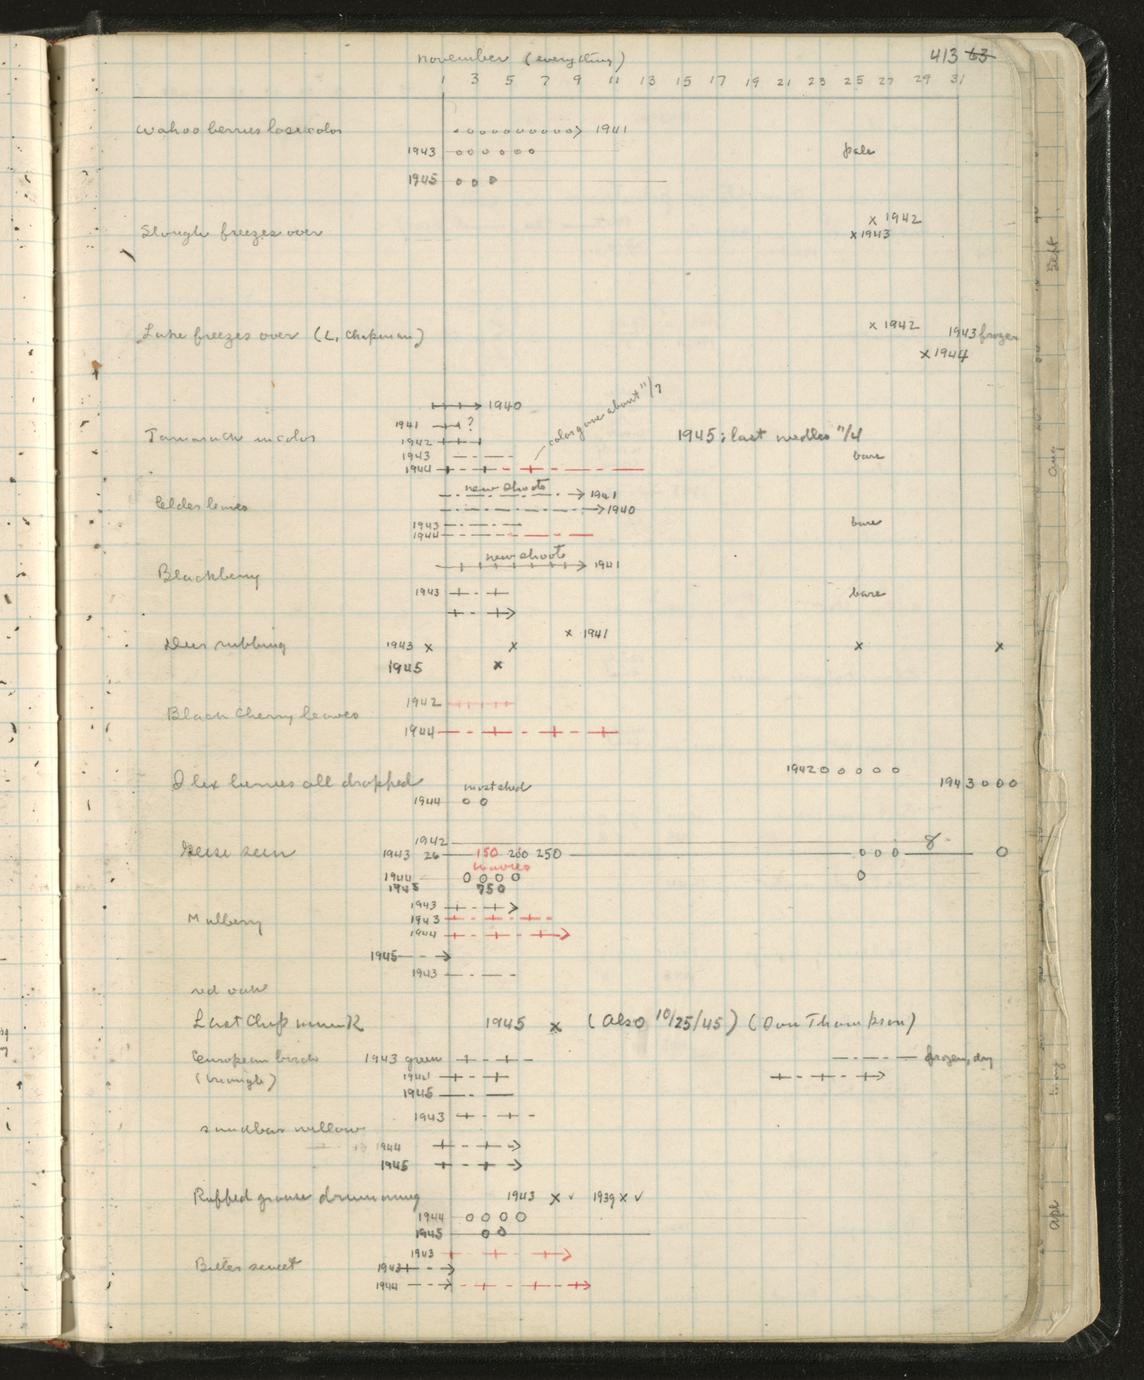 413 63
November (everything)
1 3 5 7 9 11 13 15 17 19 21 23 25 27 29 31
Wahoo berries lose color 1941
1943 pale
1945
x 1942
Slough freezes over x 1943
x 1942 1943 frozen
Lake freezes over (L. Chapman)
x 1944
1940 color gone about 11/7
1941 ?
Tamarack in color 1942 1945; last needles 11/4
1943 bare
1944
new shoots 1941
Elder leaves 1940
1943 bare
1944
new shoots
Blackberry 1941
1943 bare
x 1941
Deer rubbing 1943 x x x x
1945 x
1942
Black Cherry leaves
1944
1942 o o o o o
Ilex berries all dropped 1943 o o o
most shed
1944 o o
1942 8
Geese seen 1943 26 150 200 250 o o o o
wavies
1944 o o o o o
1945 750
1943
Mulberry 1943
1944
1945
1943
red oak
Last Chipmunk 1945 x (Also 10/25/45) (Don Thompson)
European birch 1943 green frozen, dry
(triangle) 1944
1945
1943
sandbar willow
1944
1945
Ruffed grouse drumming 1943 x ✓ 1939 x ✓
1944 o o o o
1945 o o
1943
Bittersweet 1943
1944
Sept
Aug
Apr